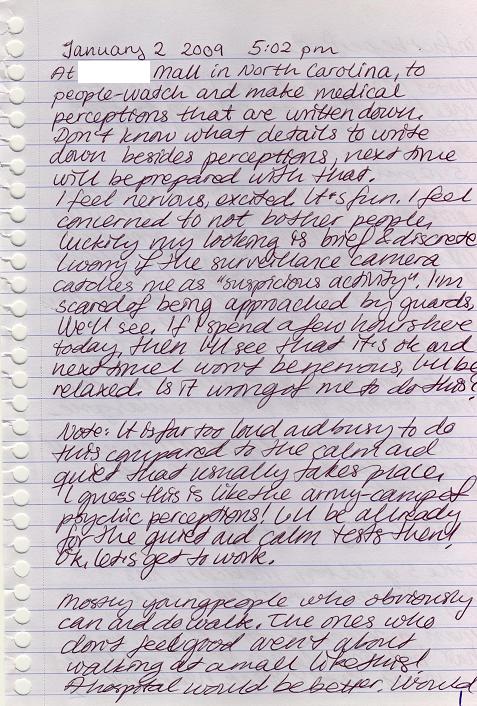 January 2 2009 5:02 pm
At Mall in North Carolina, to
people-watch and make medical
perceptions that are written down.
Don't know what details to write
down besides perceptions, next time
will be prepared with that.
I feel nervous, excited. It's fun. I feel
concerned to not bother people,
luckily my looking is brief & discrete
I worry if the surveillance camera
catches me as "suspicious activity". I'm
scared of being approached by guards.
We'll see. If I spend a few hours here
today, then I'll see that it's ok and
next time I won't be nervous, I'll be
relaxed. Is it wrong of me to do this?
Note: It is far too loud and busy to do
this compared to the calm and
quiet that usually takes place,
I guess this is like the army-camp of
psychic perceptions! I'll be all ready
for the quiet and calm tests then!
Ok, let's get to work.
Mostly young people who obviously
can and do walk. The ones who
don't feel good aren't about
walking at a mall like this!
A hospital would be better. Would